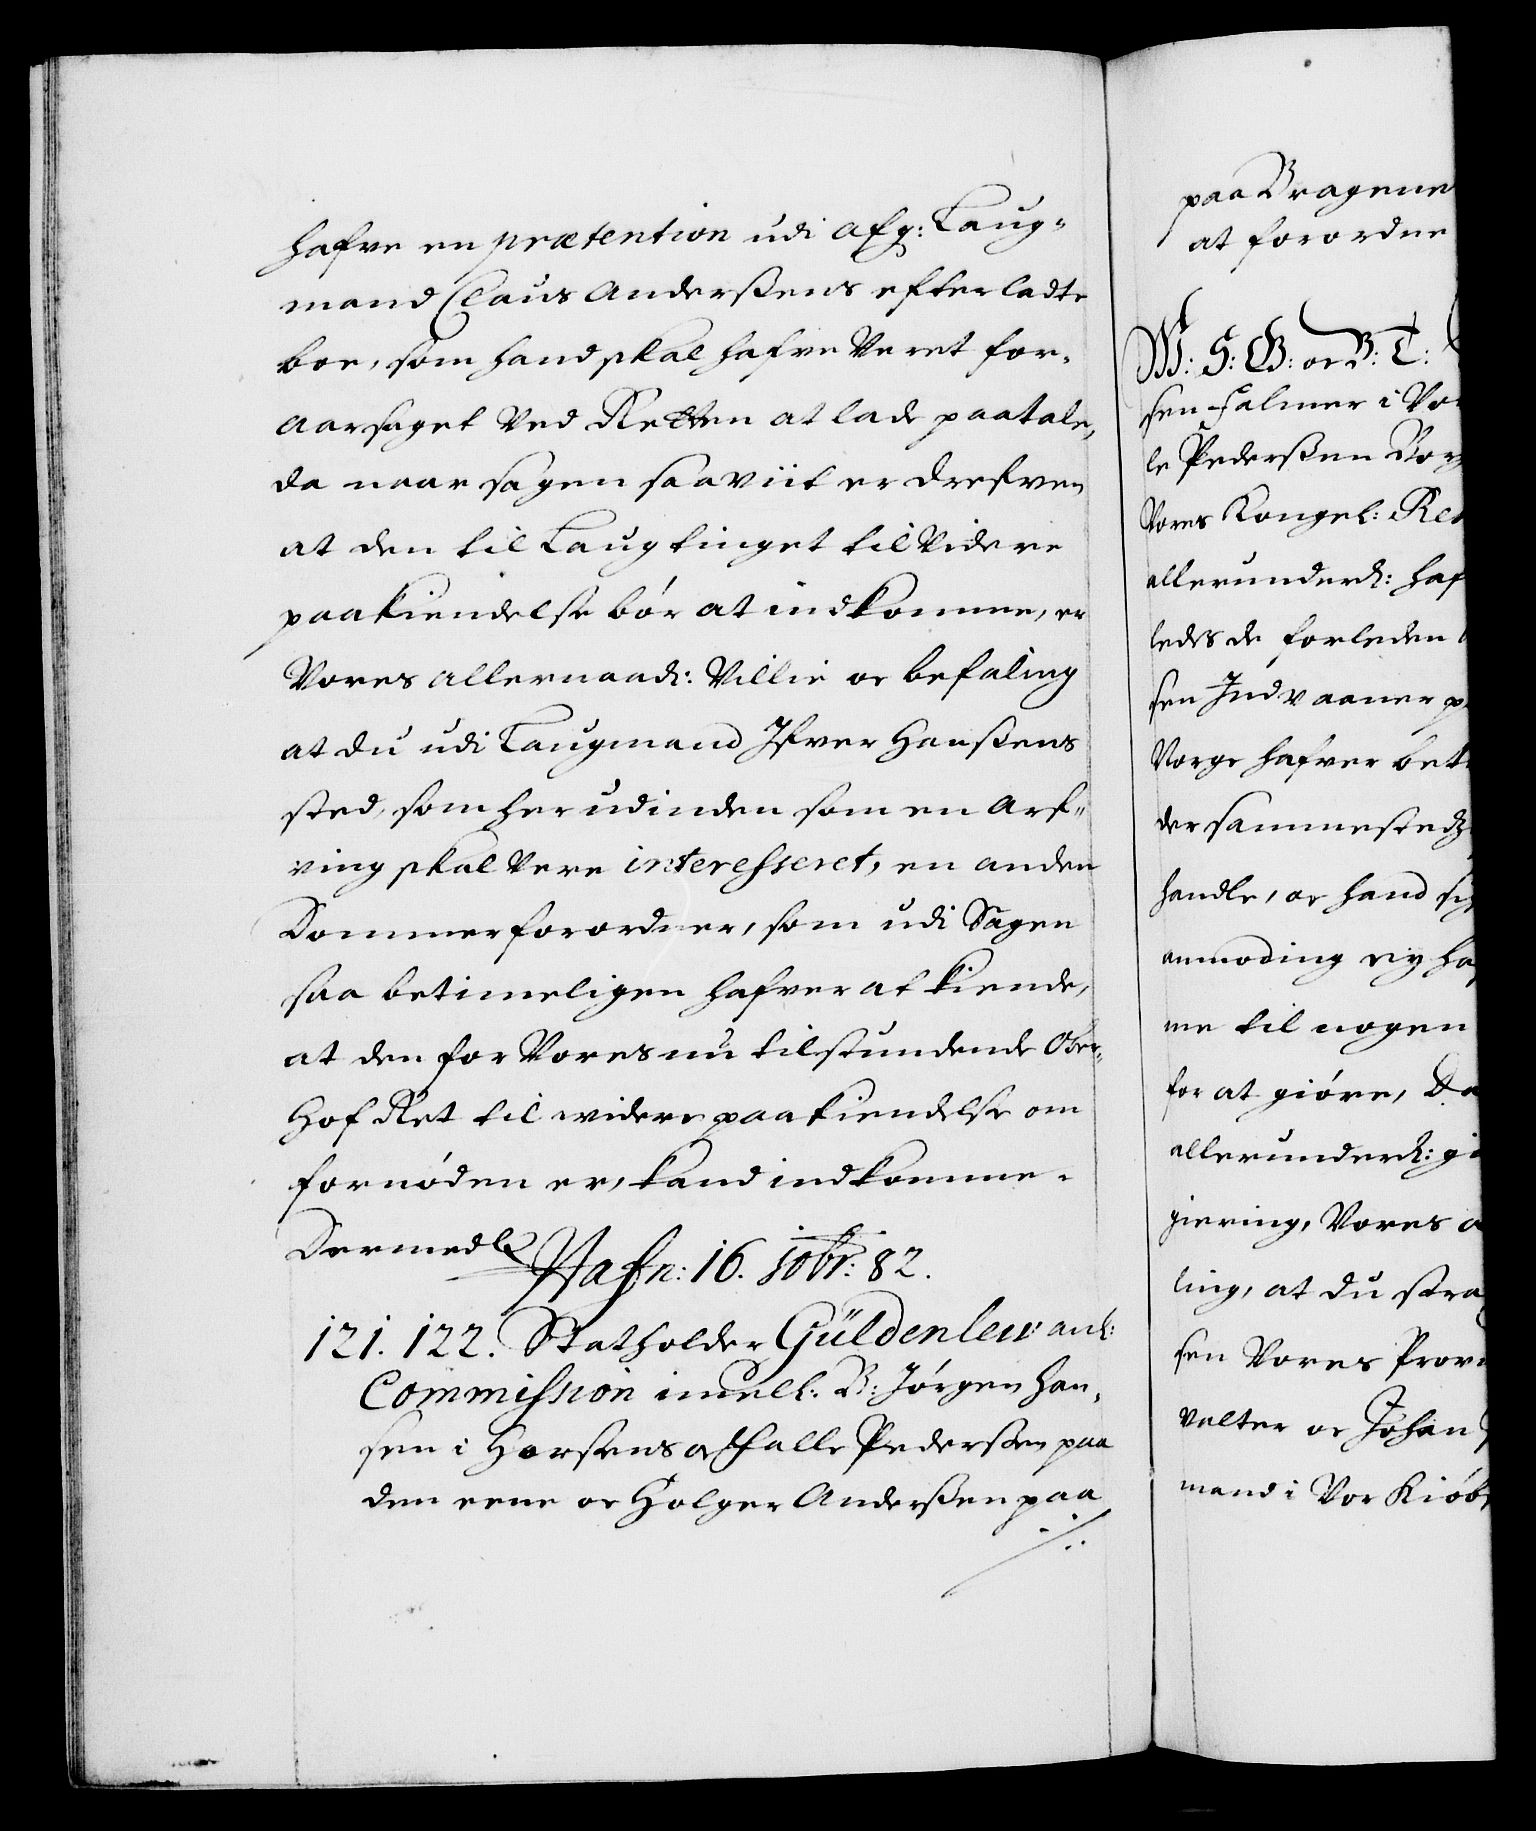 hafve en prætention udi afg: Laug-
mand Claus Anderßens efterladte
boe, som hand skal hafve veret for-
aarsaget ved Retten at lade paatale,
da naar sagen saaviit er drefven
at den til Laugtinget til videre
paakiendelse bør at indkomme, er
Vores allernaad: Villie oc befaling
at du udi Laugmand Ifver Hanßens
sted, som her udinden som en arf-
ving skal vere interesseret, en anden
Dommer forordner, som udi Sagen
saa betimeligen hafver at kiende,
at den for Vores nu tilstundende Ober-
Hof Ret til widere paakiendelse om
fornøden er, kand indkomme.
Dermedb
Hafn: 16. 10br: 82.
121. 122. Statholder Güldenlew anl:
Commission imell: B: Jørgen Han-
sen i Horsens oc Palle Pederßen paa
den eene oc Holger Anderßen paa
./..
paa Bragene
at forordne
W: S: G: oc B: T:
sen Falmer i Vo
le Pederßen Bor
Vores Kongel: Res
allerunderd: haf
ledes de forleden
sen Indvaaner p
Norge hafver bet
der sammestedz
handle, oc hand si
anmoding ey ha
me til nogen
for at giøre, Da
allerunderd: gi
giering, Vores a
ling, at du stra
sen Vores Prov
valter oc Johan
mand i Vor Kiøb